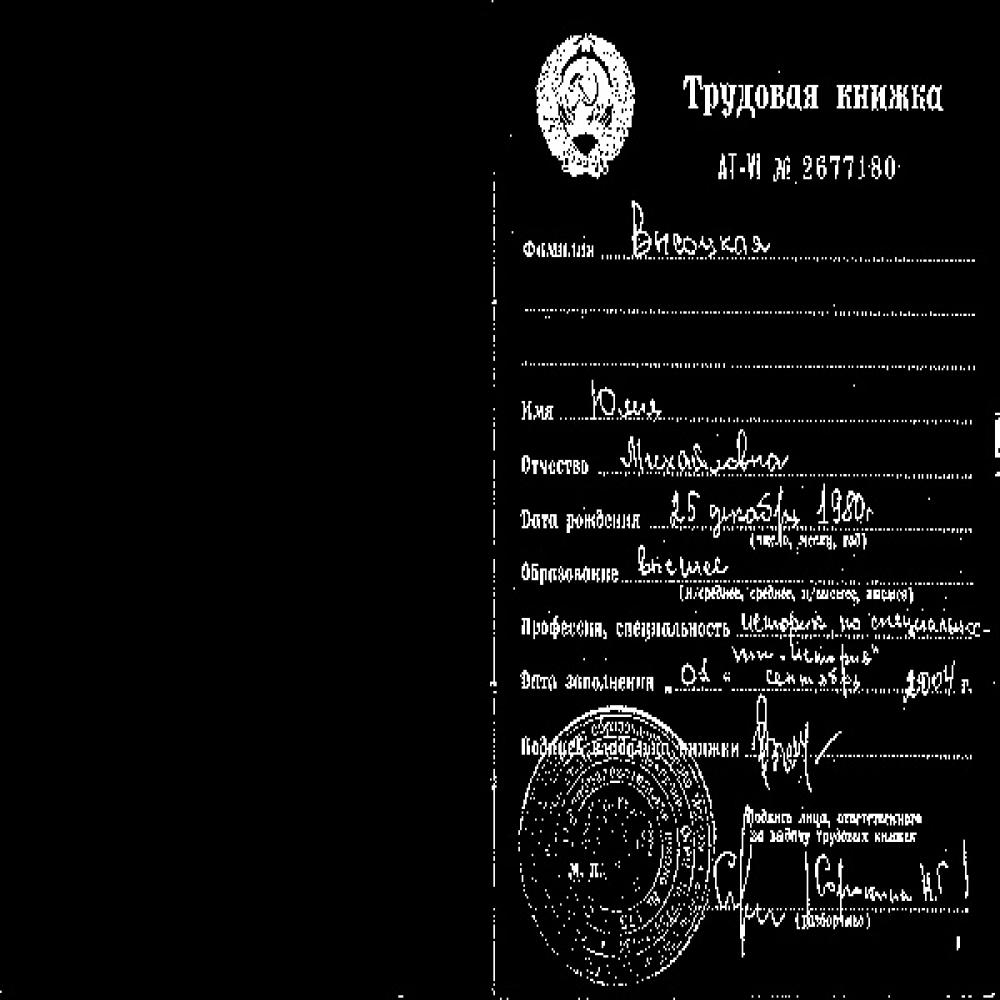 Трудовая книжка
АТ-VI № 2677180
Фамилия Высоцкая
Имя Юлия
Отчество Михайловна
Дата рождения 25 декабря 1980г
(число, месяц, год)
Образование высшее
(н/среднее, среднее, н/высшее, высшее)
Профессия, специальность историк по специально-
сти "История"
Дата заполнения "01" сентября 2004 г.
Подпись владельца книжки
Подпись лица, ответственного
за выдачу трудовых книжек
М. П.
(разборчиво)